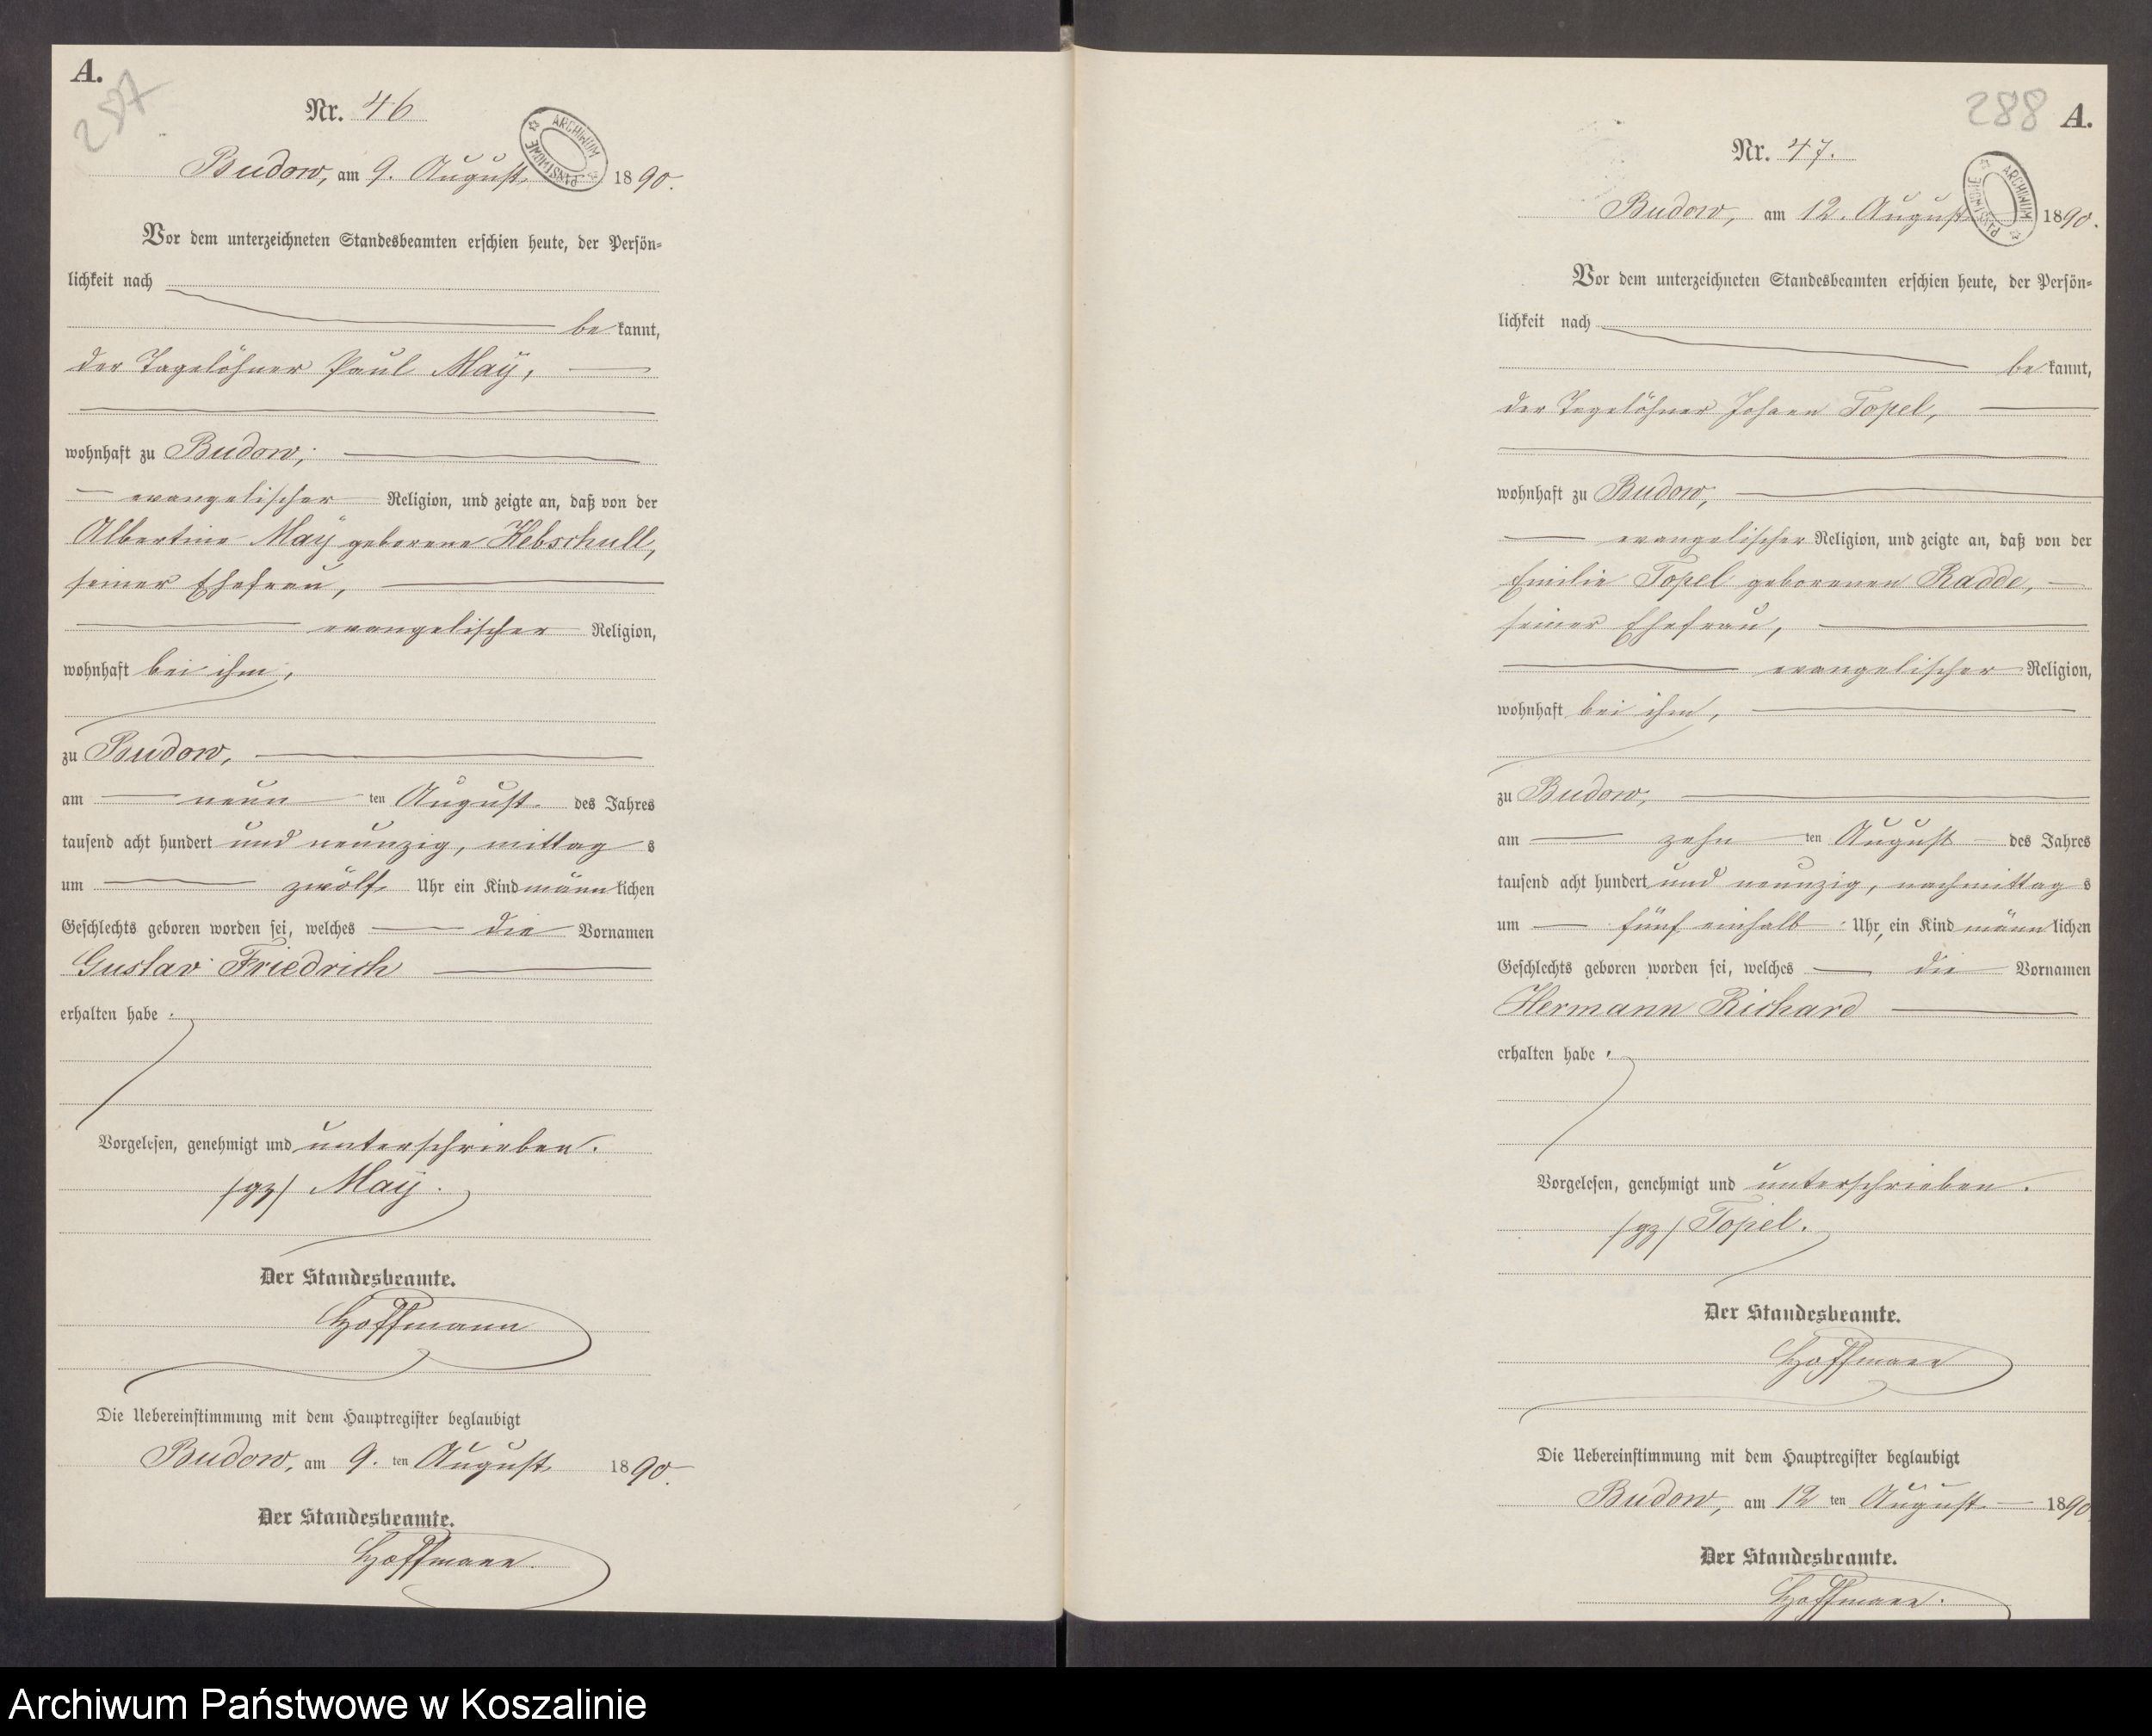 A.
287
Nr. 46
ARCHIWUM PAŃSTWOWE
Budow, am 9. August 1890.
Vor dem unterzeichneten Standesbeamten erschien heute, der Persön-
lichkeit nach
be kannt,
der Tagelöhner Paul Maÿ,
wohnhaft zu Budow,
evangelischer Religion, und zeigte an, daß von der
Albertine Maÿ geborene Kebschull,
seiner Ehefrau,
evangelischer Religion,
wohnhaft bei ihm,
zu Budow,
am neun ten August des Jahres
tausend acht hundert und neunzig, mittag s
um zwölf Uhr ein Kind männlichen
Geschlechts geboren worden sei, welches die Vornamen
Gustav Friedrich
erhalten habe.
Vorgelesen, genehmigt und unterschrieben.
/gz/ Maÿ.
Der Standesbeamte.
Hoffmann
Die Uebereinstimmung mit dem Hauptregister beglaubigt
Budow, am 9. ten August 1890.
Der Standesbeamte.
Hoffmann.
288
A.
Nr. 47.
ARCHIWUM PAŃSTWOWE
Budow, am 12. August 1890.
Vor dem unterzeichneten Standesbeamten erschien heute, der Persön-
lichkeit nach
be kannt,
der Tagelöhner Johann Topel,
wohnhaft zu Budow,
evangelischer Religion, und zeigte an, daß von der
Emilie Topel geborenen Radde,
seiner Ehefrau,
evangelischer Religion,
wohnhaft bei ihm,
zu Budow,
am zehn ten August des Jahres
tausend acht hundert und neunzig, nachmittag s
um fünf einhalb Uhr, ein Kind männlichen
Geschlechts geboren worden sei, welches die Vornamen
Hermann Richard
erhalten habe.
Vorgelesen, genehmigt und unterschrieben.
/gz/ Topel.
Der Standesbeamte.
Hoffmann
Die Uebereinstimmung mit dem Hauptregister beglaubigt
Budow, am 12 ten August 1890
Der Standesbeamte.
Hoffmann.
Archiwum Państwowe w Koszalinie